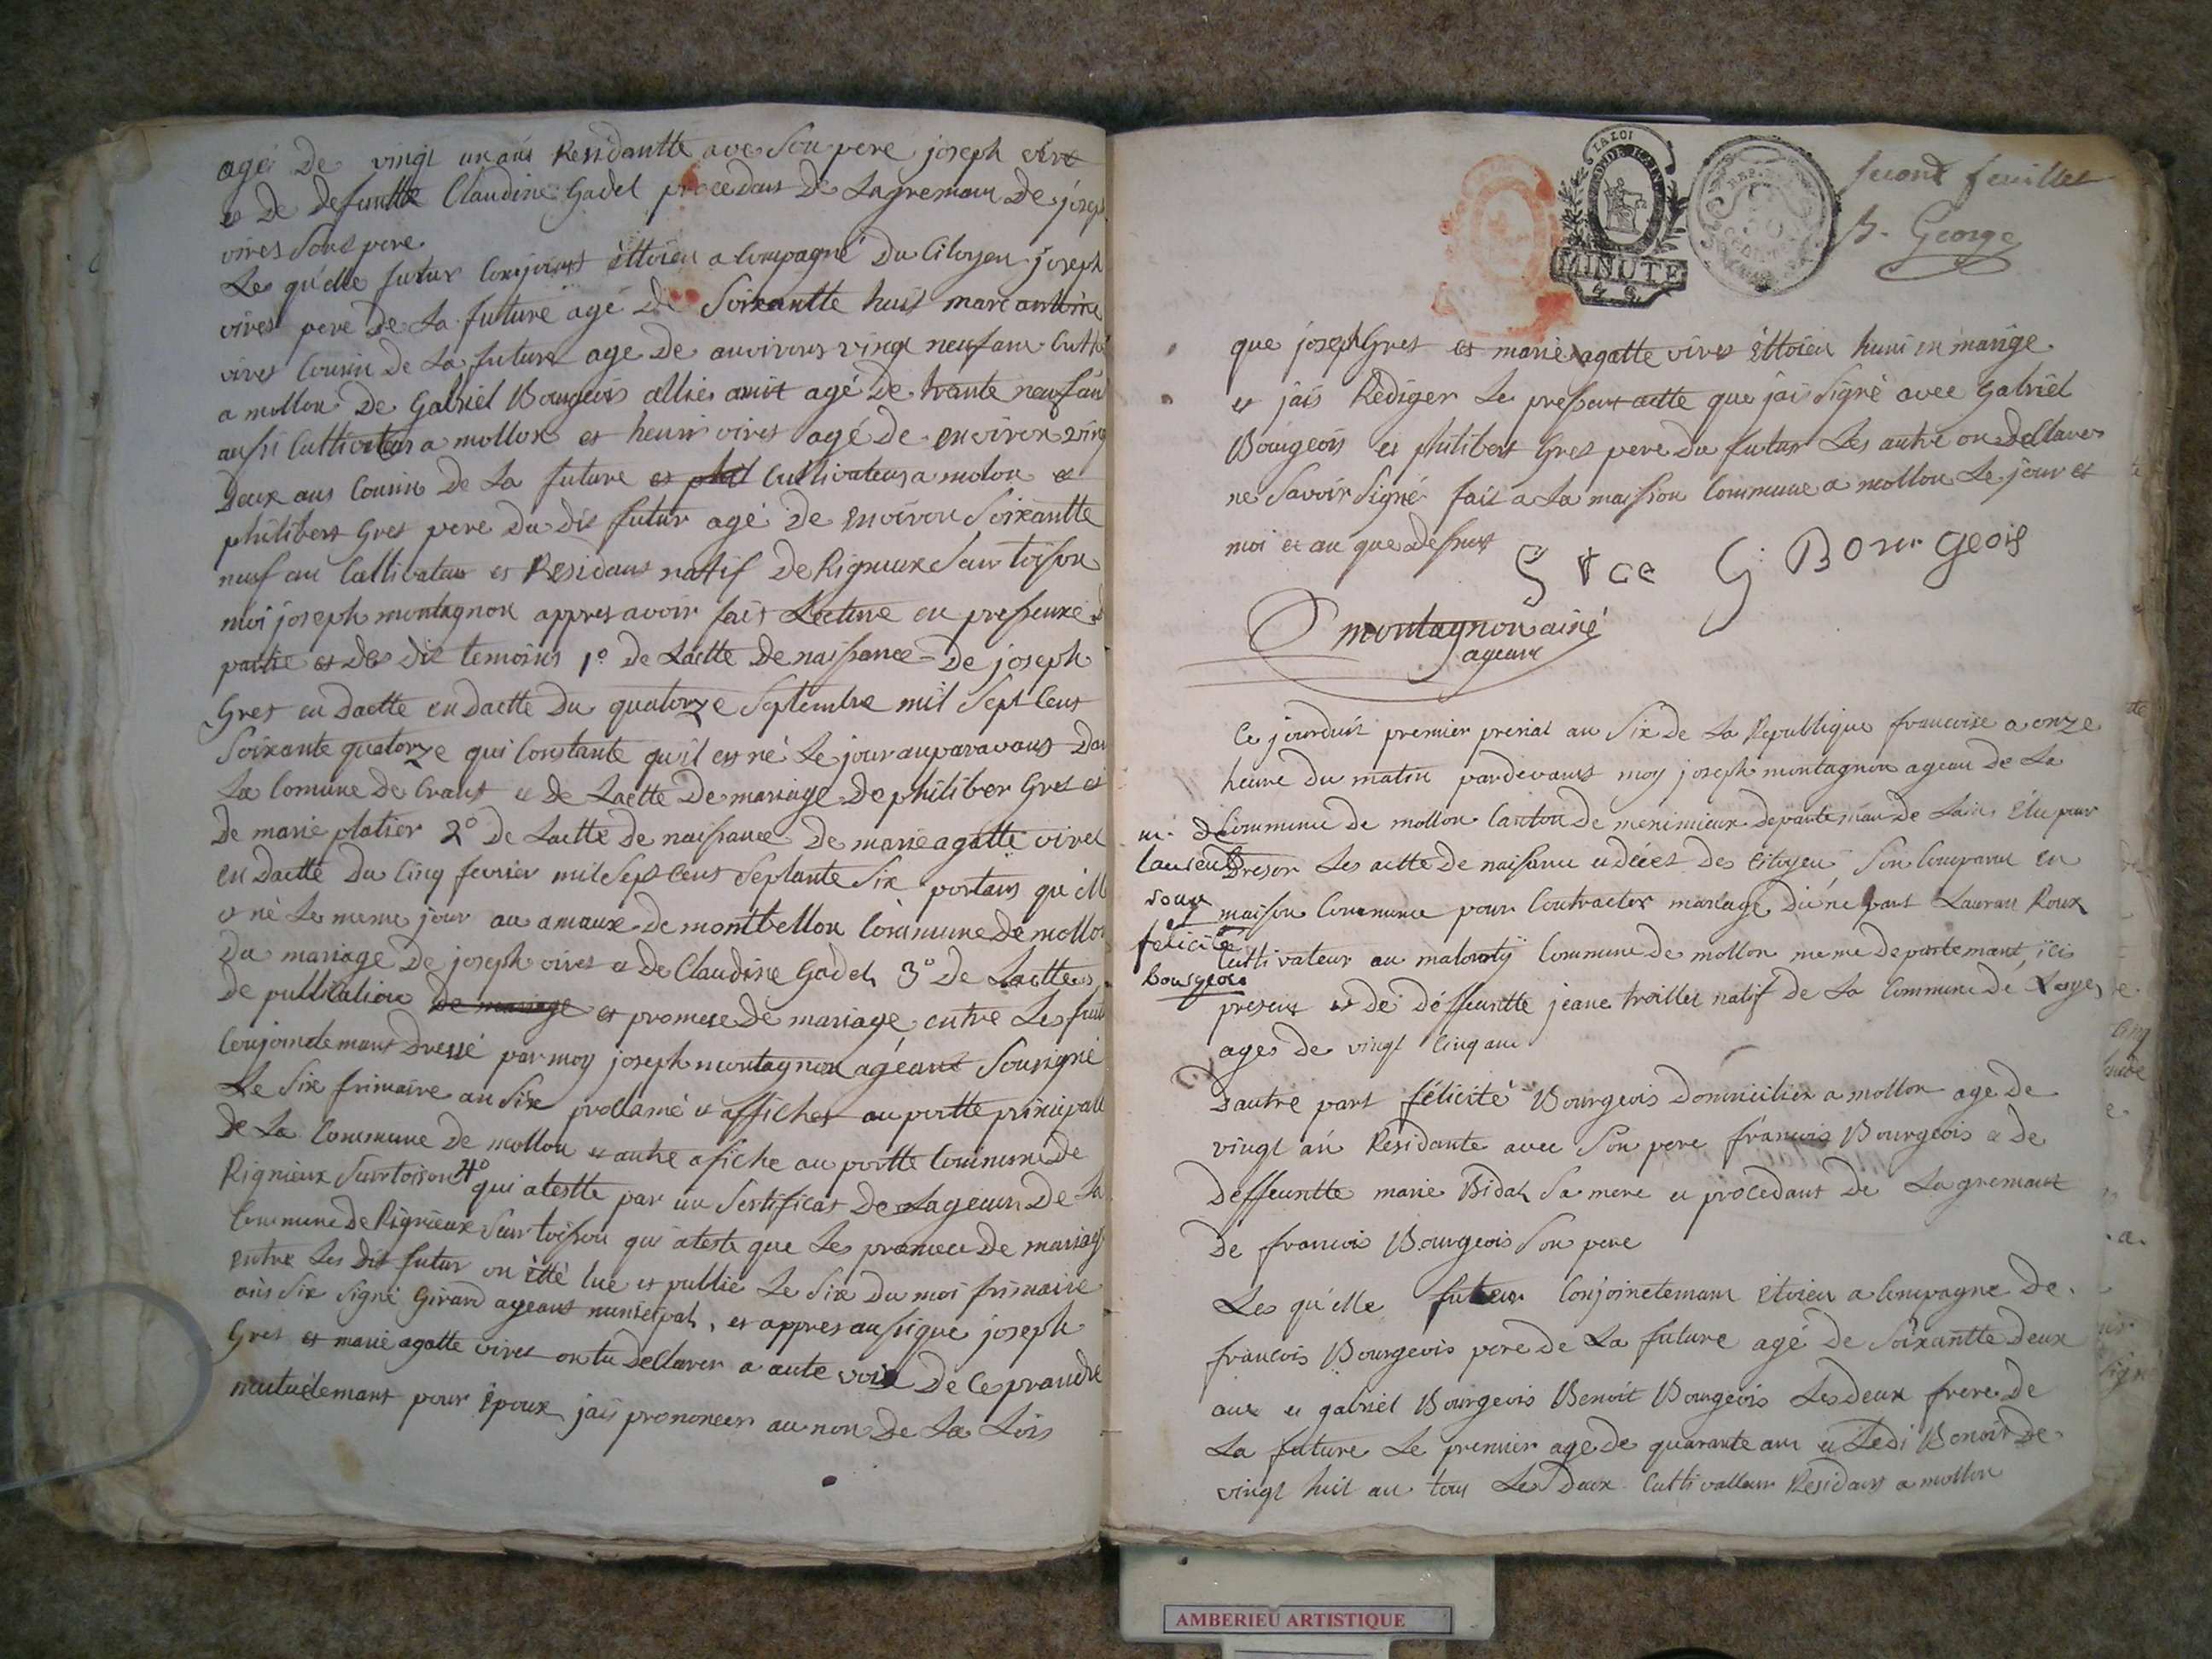 agé De vingt un ans Residantte avec Son pere joseph vire
et De Defuntte Claudine Gadel procedant De Lagremant De joseph
vires Sont pere
Les qu'elle futur Conjoint ettoien a Compagné Du Citoyen joseph
vires pere De La future agé de Soixantte huit marc anttoine
vires Cousin De La future age De anvirons vingt neuf ans
a mollon De Gabriel Bourgeois allié agé De trante neuf an
aussi Cultivateur a mollon et henri vires agé De environ vingt
Deux ans Cousin De La future Cultivateur a molon et
philibert Gres pere Du Dit futur agé De environ Soixantte
neuf an Cultivateur et Residant nattif De Rignieux Sur toison
moi joseph montagnon appres avoir fait Lecture en pressence
partie et des dit temoins 1° De Lactte De naissance De joseph
Gres en Dactte en Dactte Du quatorze Septembre mil Sept Cent
Soixante quatorze qui Constante qu'il est né Le jour auparavant Dan
La Comune De Crans et De Lactte De mariage De philiber Gres et
De marie platier 2° De Lactte De naissance De marie agatte vires
en Dactte Du Cinq fevrier mil Sept Cent Septante Six portans qu'elle
et né Le meme jour au amaux De montbellon Commune De mollon
Du mariage De joseph vires et De Claudine Gadel 3° De Lactte
De publication De mariage et promese De mariage entre Les futur
Conjointemant Dressé par moy joseph montagnon agéant Sousigné
Le Six frimaire an Six proclamé et affiché au portte principalle
De La Commune De mollon et autre afiche au portte Commune De
Rignieux Sur toison 4° qui atestte par un Sertificat De Lageant De La
Commune De Rignieux Sur toison qui ateste que Les promece De mariage
entre Les Dit futur on etté lue et publié Le Six Du moi frimaire
ans Six Signé Girard ageant municipal, et appres aussi que joseph
Gres et marie agatte vires ontu Declarer a aute voix De Ce prandre
mutuélemant pour Epoux jais prononcer au non De La Lois
Second feuillet
B. George
LA LOI
MINUTE
que joseph Gres et marie agatte vires ettoien huni en mariage
et jais Rédiger Le pressent actte que jai Signé avec Gabriel
Bourgeois et philibert Gres pere Du futur Les autre on Dellarer
ne Savoir Signé fait a La maison Commune a mollon Le jour et
moi et an que Dessus
G Bourgeois
montagnon ainé
ageant
Ce jourduit premier prerial an Six De La Republique francoise a onze
heure Du matin pardevant moy joseph montagnon ageant De La
Commune De mollon Canton De meximieux departeman De Lain Elu pour
Dresor Les actte De naissance et décet Des Citoyen Son Comparu en
maison Commune pour Contracter mariage D'une part Lauran Roux
Cultivateur au Commune De mollon meme Departemant, ici
present et De Deffeuntte jeane troillet natif De La Commune De Loyes
ages De vingt Cinq ans
m. De
Laurent
roux
et
felicité
Bourgeois
Dautre part félicité Bourgeois Domicilier a mollon age De
vingt an Residante avec Son pere francois Bourgeois et De
Deffeuntte marie Bidal Sa mere et procedant De Lagremant
De francois Bourgeois Son pere
Les qu'elle futur Conjointemant étoien a Compagne De
francois Bourgeois pere De La future agé de Soixantte Deux
ans et gabriel Bourgeois Benoit Bourgeois Les Deux frere De
La future Le premier age De quarante ans et Ledi Benoit De
vingt huit an tous Les Deux Cultivatteur Residant a mollon
AMBERIEU ARTISTIQUE